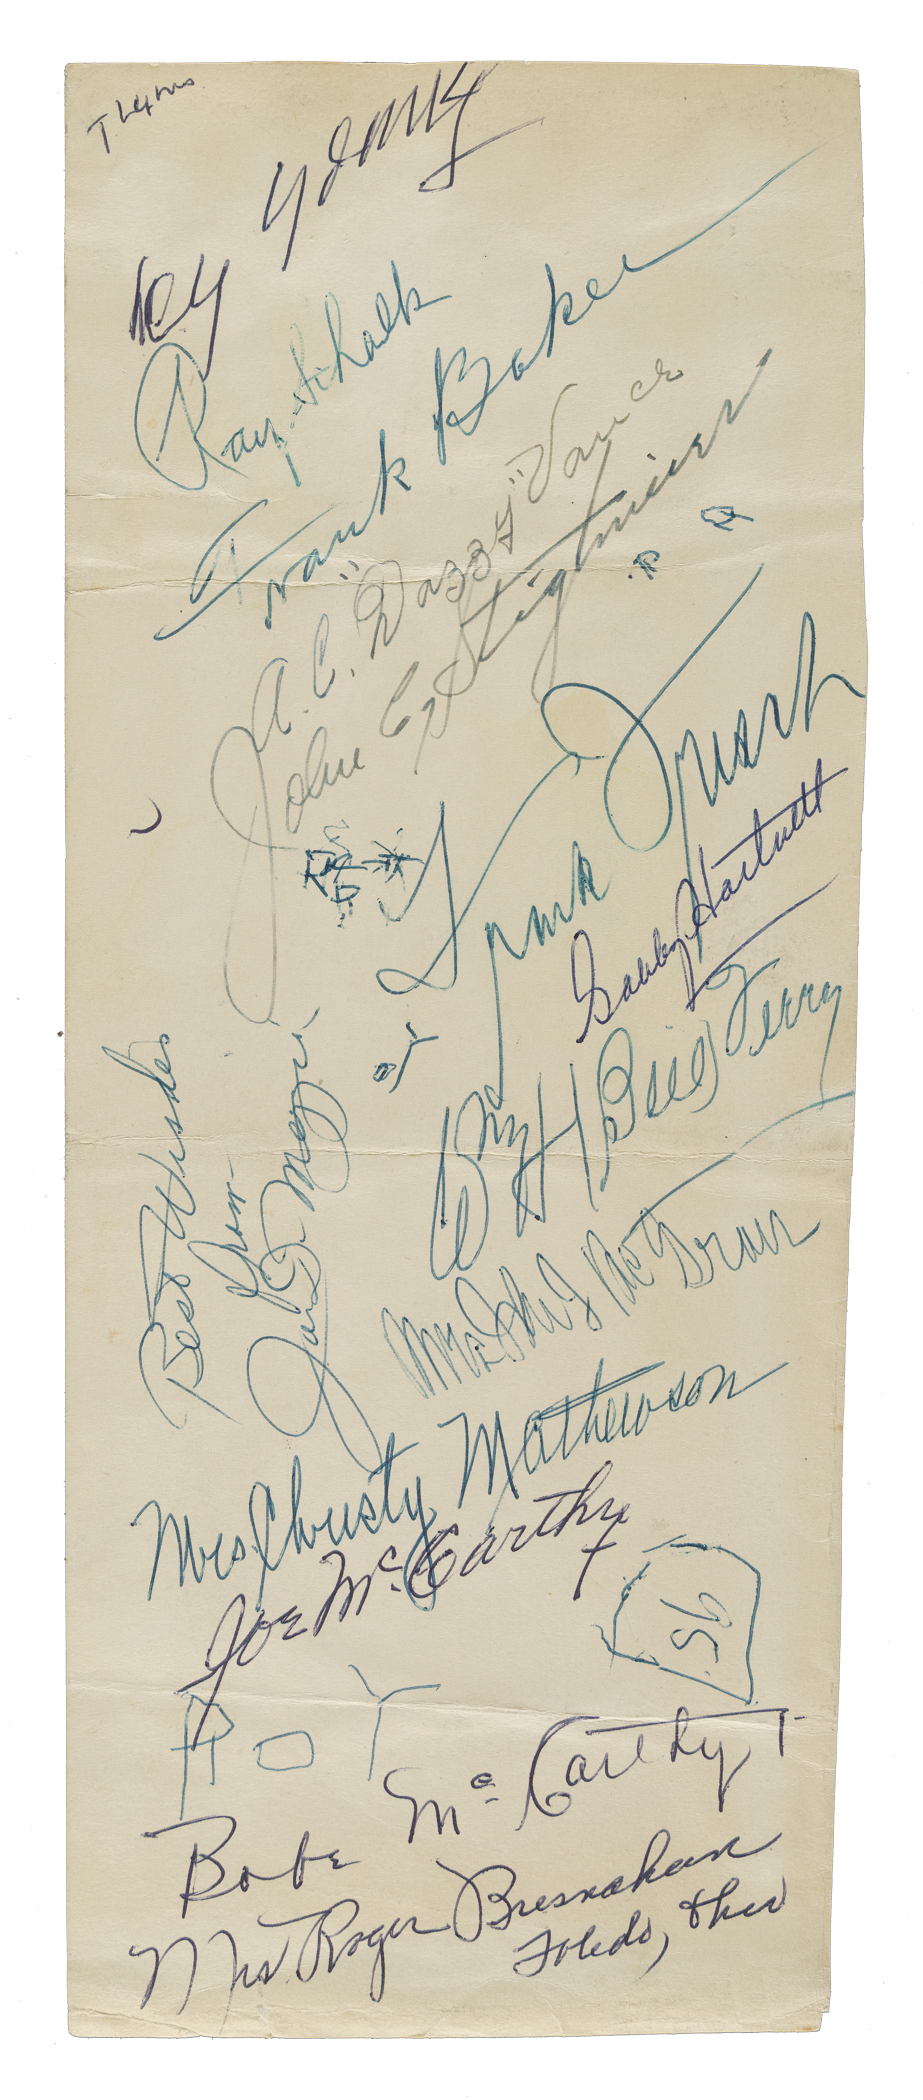 Cy Young
Ray Schalk
Frank Baker
A. C. "Dazzy" Vance
John C Stigmeier
Frank Frisch
Gabby Hartnett
Wm H Bill Terry
Best Wishes
From
Joe Di Maggio
Mrs. John J McGraw
Mrs. Christy Mathewson
Joe McCarthy
56
ROY
Babe McCarthy
Mrs. Roger Bresnahan
Toledo, Ohio